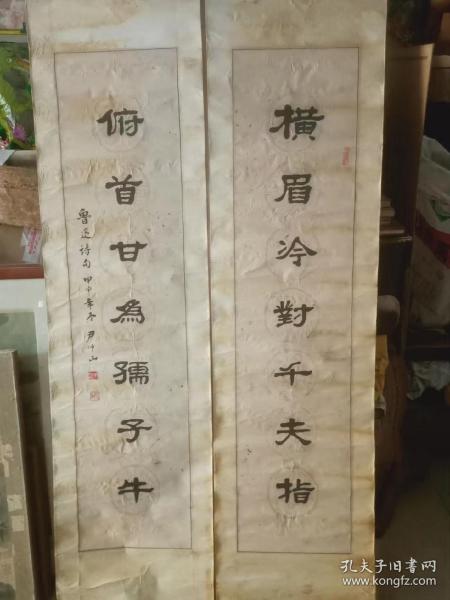 橫眉冷對千夫指
俯首甘為孺子牛
魯迅詩句 甲申年冬 尹小山
孔夫子旧书网
www.kongfz.com